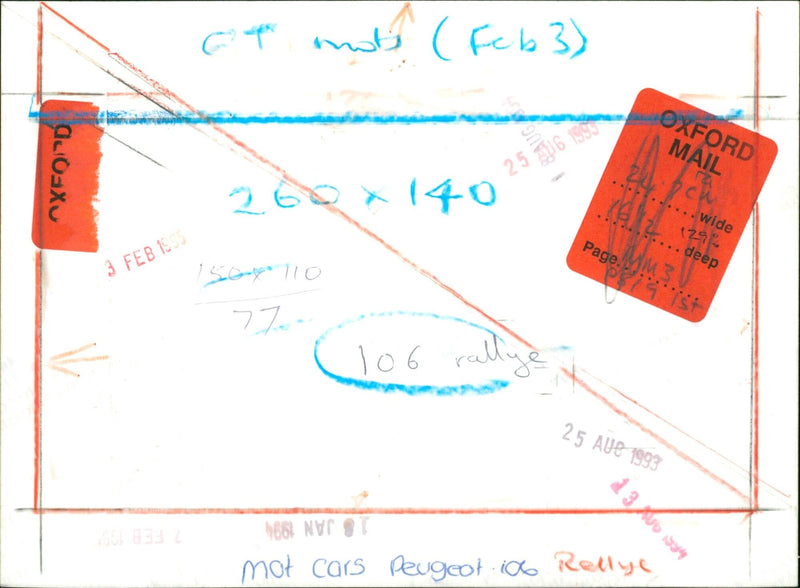 OT mots (Feb 3)
25 AUG 1993
OXFORD
MAIL
wide
deep
Page
1st
OXFORD
260 x 140
3 FEB 1995
150 x 110
77
106 rallye
25 AUG 1993
13 AUG 1994
7 FEB 199
18 JAN 1994
Mot cars Peugeot 106 Rallye